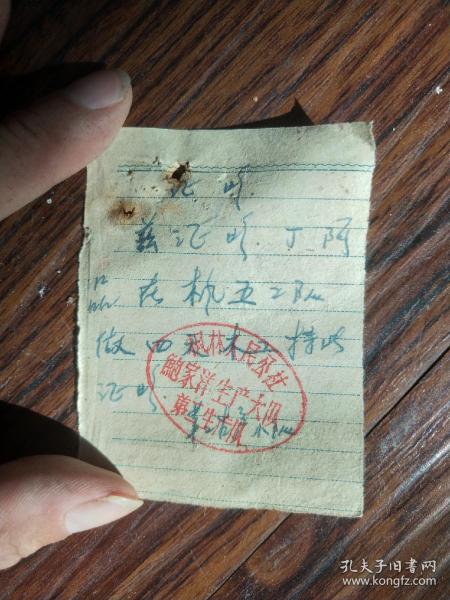 证明
兹证明丁阿
在机五二队
做四天木工特此
证明
林人民公社
鲍家洋生产大队
第二生产队
孔夫子旧书网
www.kongfz.com